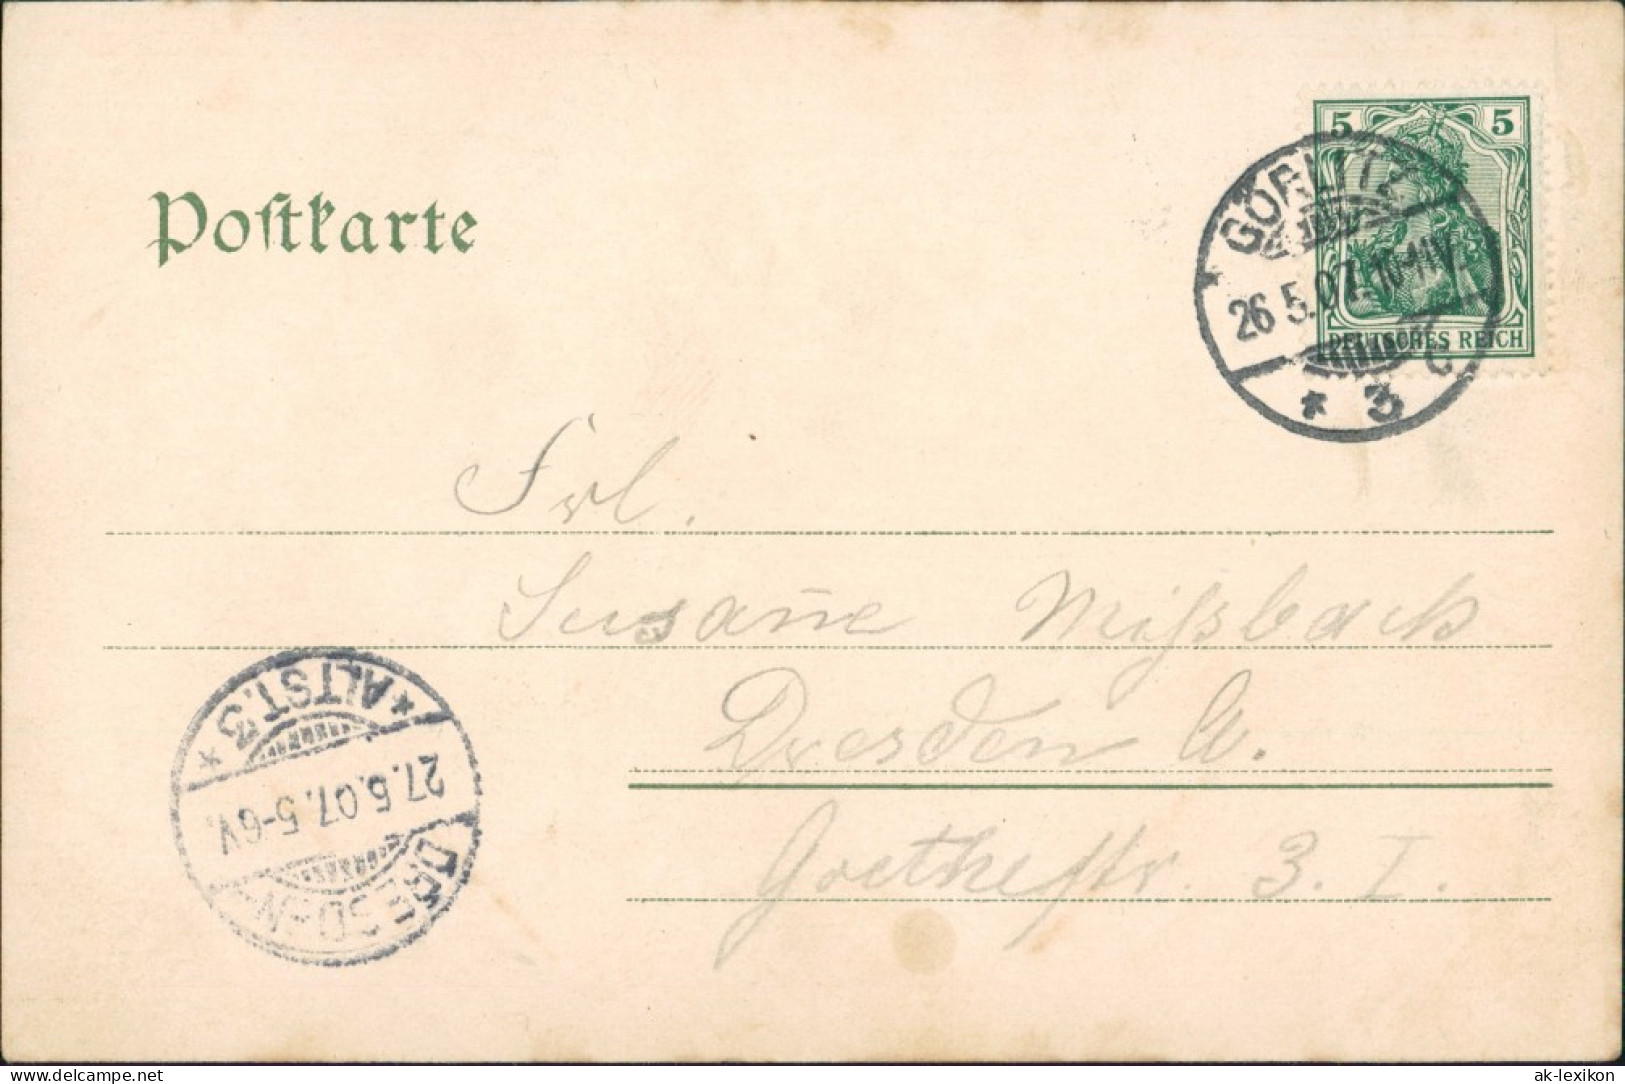 Postkarte
5 5
DEUTSCHES REICH
* GÖRLITZ
26.5.07. 10-11V.
* 3 c
Frl.
Susan̄e Missbach
Dresden A.
Goethestr. 3. I.
DRESDEN-
27.5.07. 5-6V.
*ALTST.3*
delcampe.net
ak-lexikon